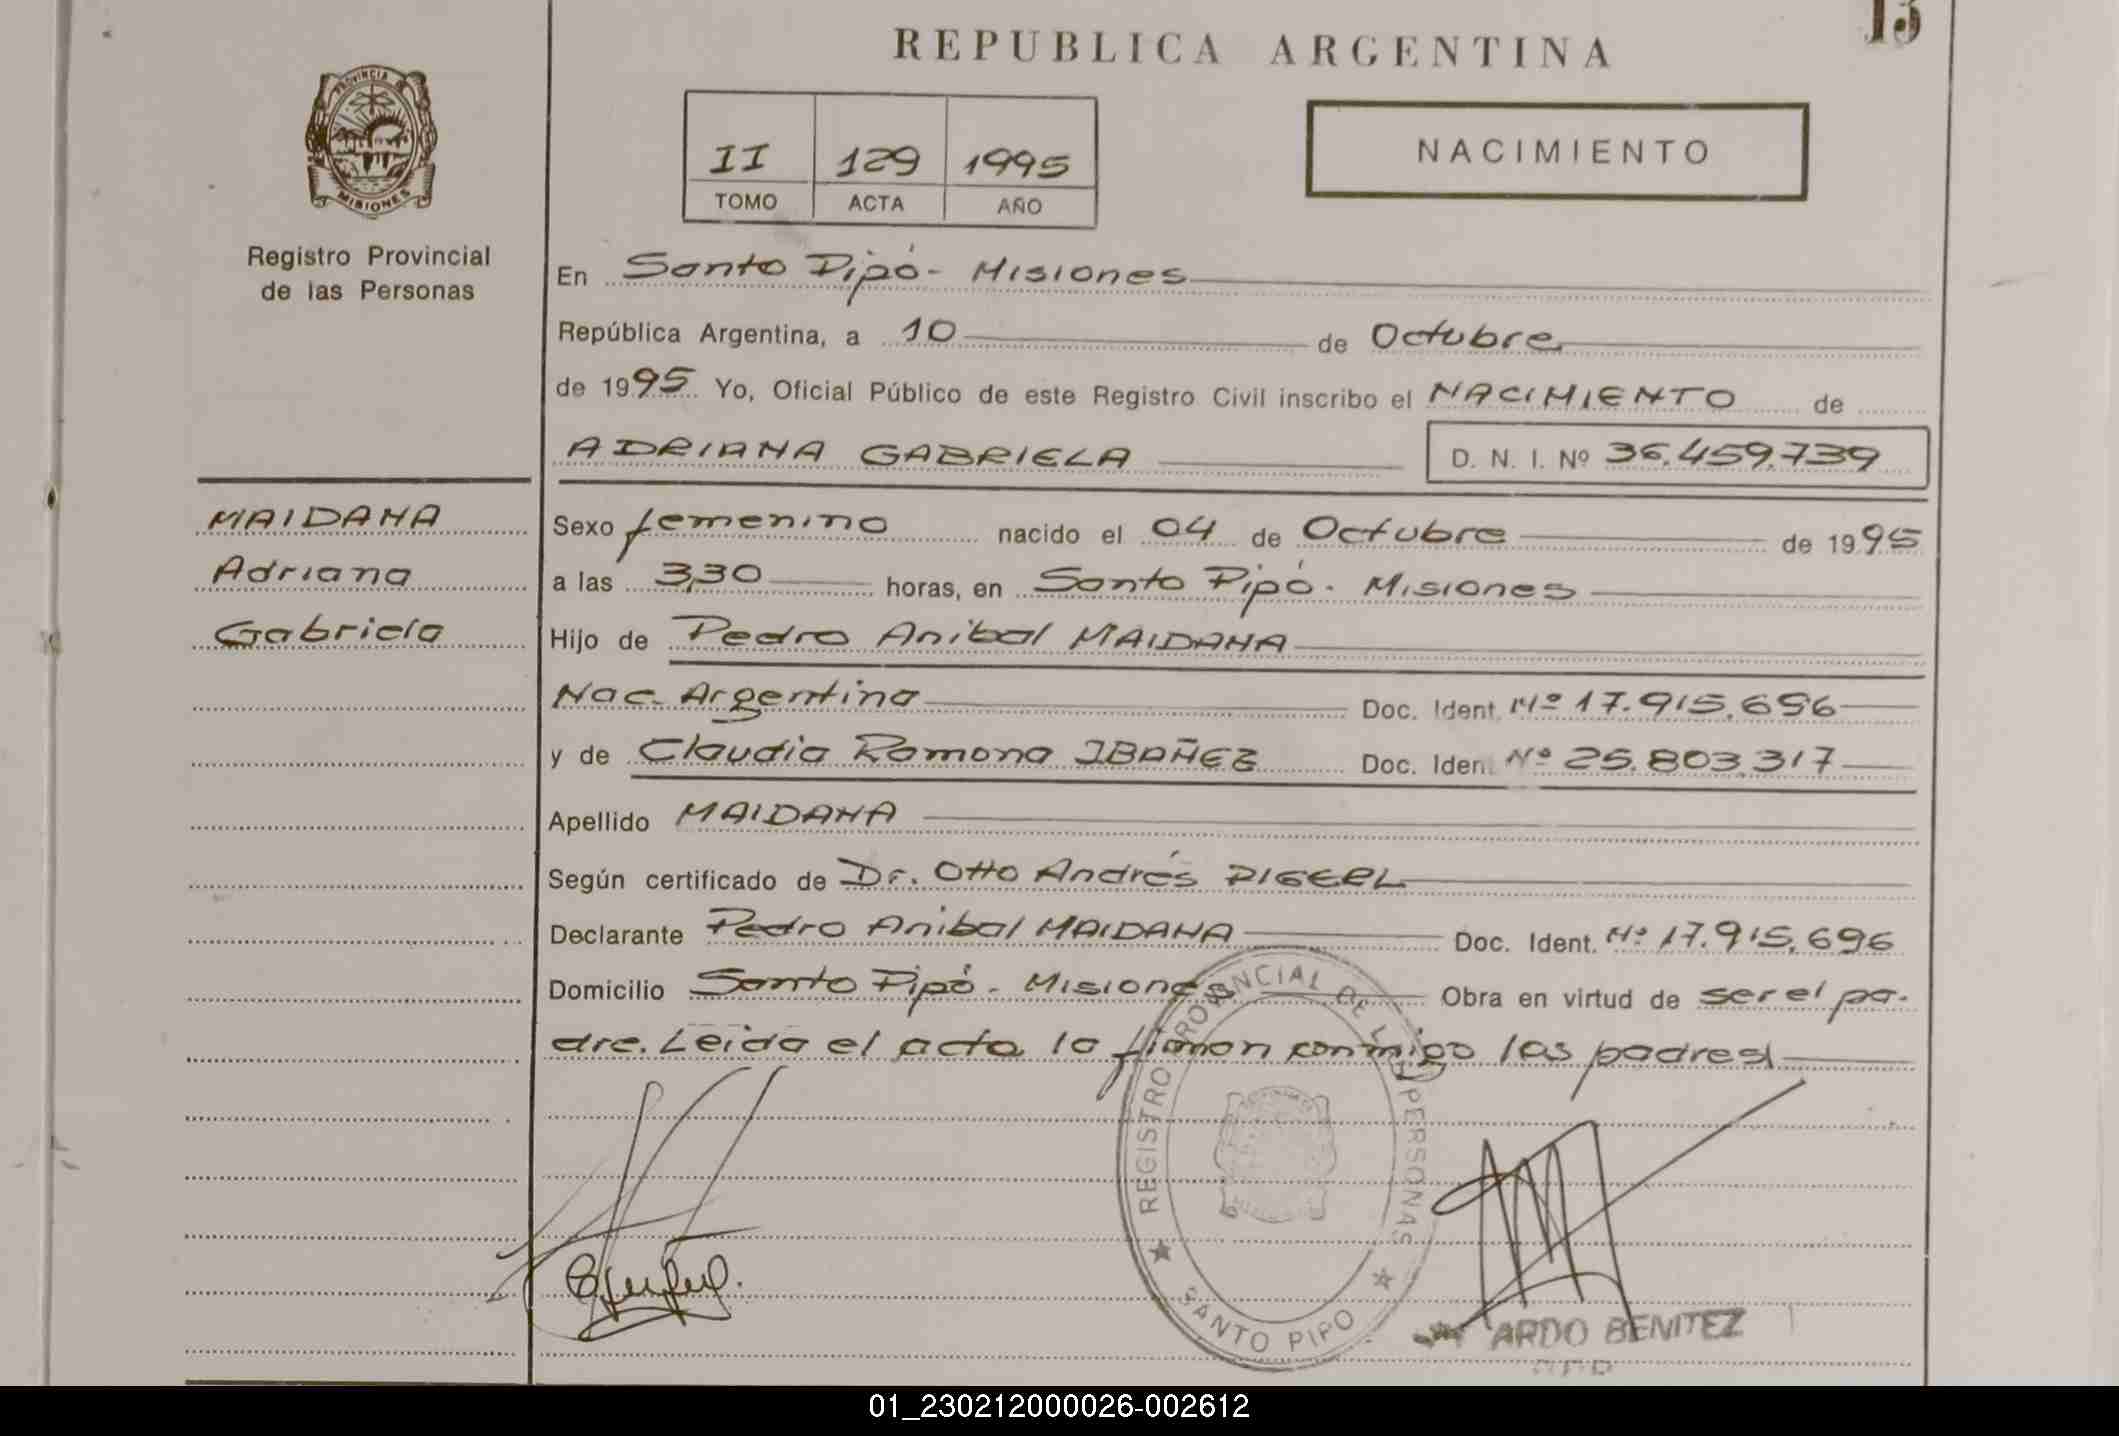 15
REPUBLICA ARGENTINA
PROVINCIA DE
MISIONES
Registro Provincial
de las Personas
II 129 1995
TOMO ACTA AÑO
NACIMIENTO
En Santo Pipó - Misiones
República Argentina, a 10 de Octubre
de 1995 Yo, Oficial Público de este Registro Civil inscribo el NACIMIENTO de
ADRIANA GABRIELA D. N. I. Nº 36.459.739
MAIDANA
Adriana
Gabriela
Sexo femenino nacido el 04 de Octubre de 1995
a las 3,30 horas, en Santo Pipó - Misiones
Hijo de Pedro Anibal MAIDANA
Nac. Argentina Doc. Ident. Nº 17.915.696
y de Claudia Ramona IBAÑEZ Doc. Iden. Nº 25.803.317
Apellido MAIDANA
Según certificado de Dr. Otto Andrés
Declarante Pedro Anibal MAIDANA Doc. Ident. Nº 17.915.696
Domicilio Santo Pipó - Misiones Obra en virtud de ser el pa-
dre. Leida el acta la firman conmigo los padres
REGISTRO PROVINCIAL DE LAS PERSONAS
SANTO PIPO
ARDO BENITEZ
01_230212000026-002612